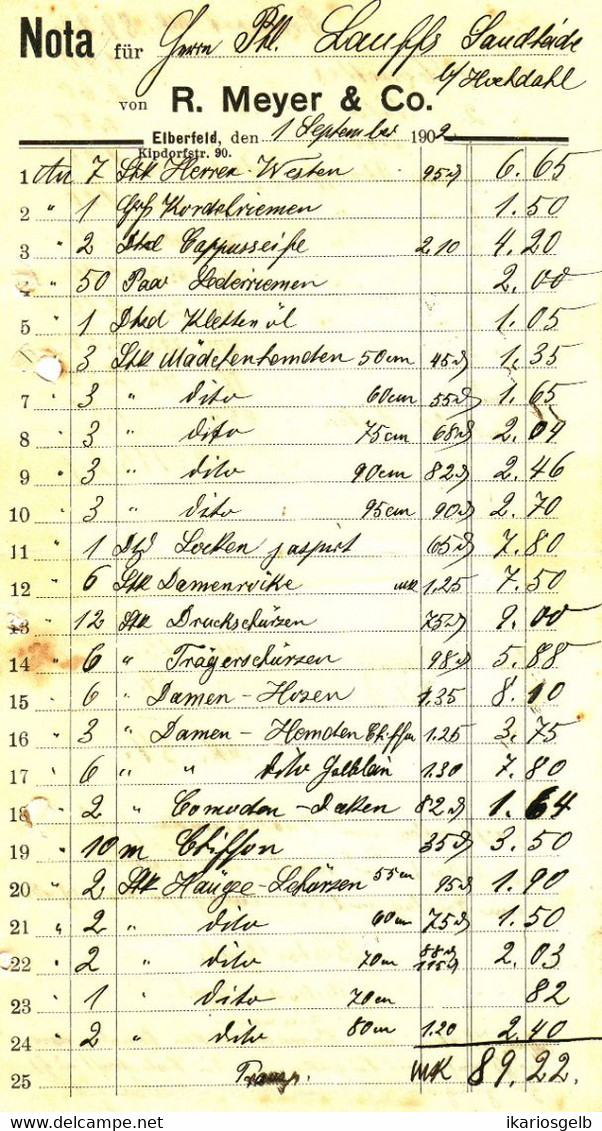 Nota für Herrn Phl. Lauffs Sandheide
b/ Hochdahl
von R. Meyer & Co.
Elberfeld, den 1 September 1902
Kipdorfstr. 90.
1 An 7 Stk Herren-Westen 95₰ 6.65
2 " 1 Grß Kordelriemen 1.50
3 " 2 Dtzd Cappusseife 2.10 4.20
4 " 50 Paar Lederriemen 2.00
5 " 1 Dtzd Klettenöl 1.05
3 Stk Mädchenhemden 50cm 45₰ 1.35
7 " 3 " dito 60cm 55₰ 1.65
8 " 3 " dito 75cm 68₰ 2.04
9 " 3 " dito 90cm 82₰ 2.46
10 " 3 " dito 95cm 90₰ 2.70
11 " 1 Dtzd Socken jaspirt 65₰ 7.80
12 " 6 Stk Damenröcke mk 1.25 7.50
13 " 12 Stk Druckschürzen 75₰ 9.00
14 " 6 " Trägerschürzen 98₰ 5.88
15 " 6 " Damen-Hosen 1.35 8.10
16 " 3 " Damen-Hemden Chiffon 1.25 3.75
17 " 6 " " dito 1.30 7.80
18 " 2 " Comoden-Decken 82₰ 1.64
19 " 10 m Chiffon 35₰ 3.50
20 " 2 Stk Hänge-Schürzen 55cm 95₰ 1.90
21 " 2 " dito 60cm 75₰ 1.50
22 " 2 " dito 70cm 88₰ 115₰ 2.03
23 1 " dito 70cm 82
24 " 2 " dito 80cm 1.20 2.40
25 Transp. MK 89.22.
ikariosgelb